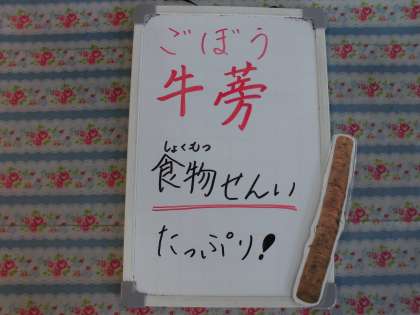 ごぼう
牛蒡
しょくもつ
食物せんい
たっぷり!